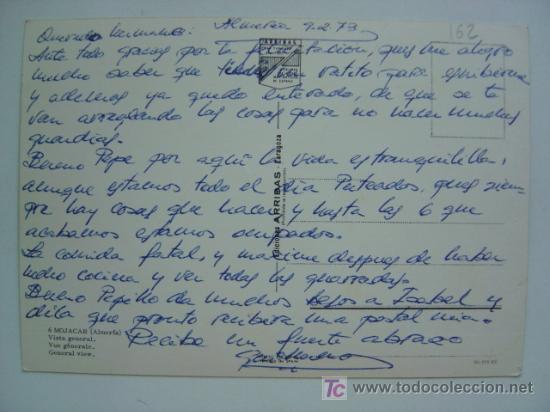 Querido hermano: Almería 9-2-73
162
Ante todo gracias por tu felicitación, pues me alegro
mucho saber que tienes un ratito para escribirme
y además ya quedo enterado, de que se te
van arreglando las cosas para no hacer muchas
guardias.
Bueno Pepe por aquí la vida es tranquililla,
aunque estamos todo el día Puteados, pues siem-
pre hay cosas que hacer y hasta las 6 que
acabamos estamos ocupados.
La comida fatal, y maxime despues de haber
hecho cocina y ver todas las guarradas.
Bueno Pepillo da muchos besos a Isabel y
dila que pronto recibira una postal mia.
Recibe un fuerte abrazo
ARRIBAS
Ediciones ARRIBAS Zaragoza
6 MOJACAR (Almería)
Vista general.
Vue générale.
General view.
todocoleccion
www.todocoleccion.net